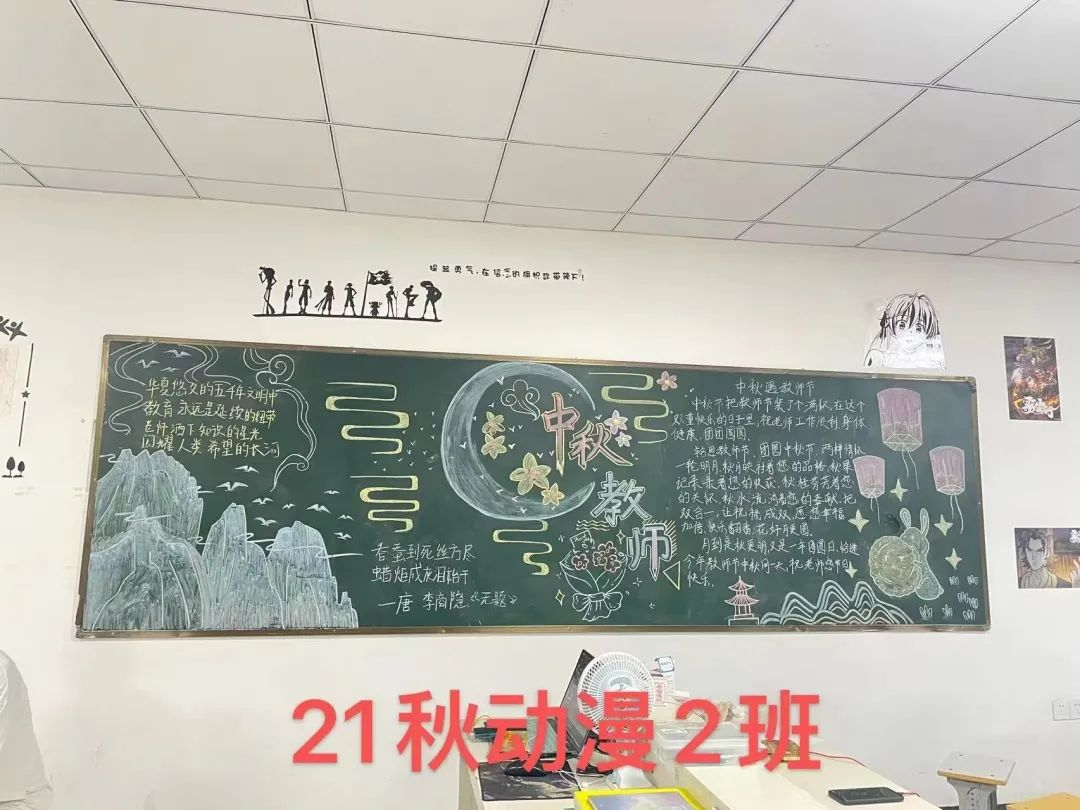 握起勇气,在信念的旗帜带领下!
华夏悠久的五千年文明中
教育永远是延续的纽带
老师洒下知识的星光
闪耀人类希望的长河
中秋
教师
春蚕到死丝方尽
蜡炬成灰泪始干
—唐 李商隐《无题》
中秋遇教师节
中秋节把教师节装了个满怀,在这个
双重快乐的日子里,祝老师工作顺利身体
健康,团团圆圆
教师节,团圆中秋节,两样情怀
一轮明月,秋月映衬着您的品格,秋果
记录着您的收获,秋桂芬芳着您
的关怀,秋水流淌着您的奉献,把
双合一,让祝福成双,愿您幸福
加倍,快乐翻番,花好月更圆
月到是秋更明,又是一年团圆日,恰逢
今年教师节中秋同一天,祝老师您节日
快乐。
21秋动漫2班